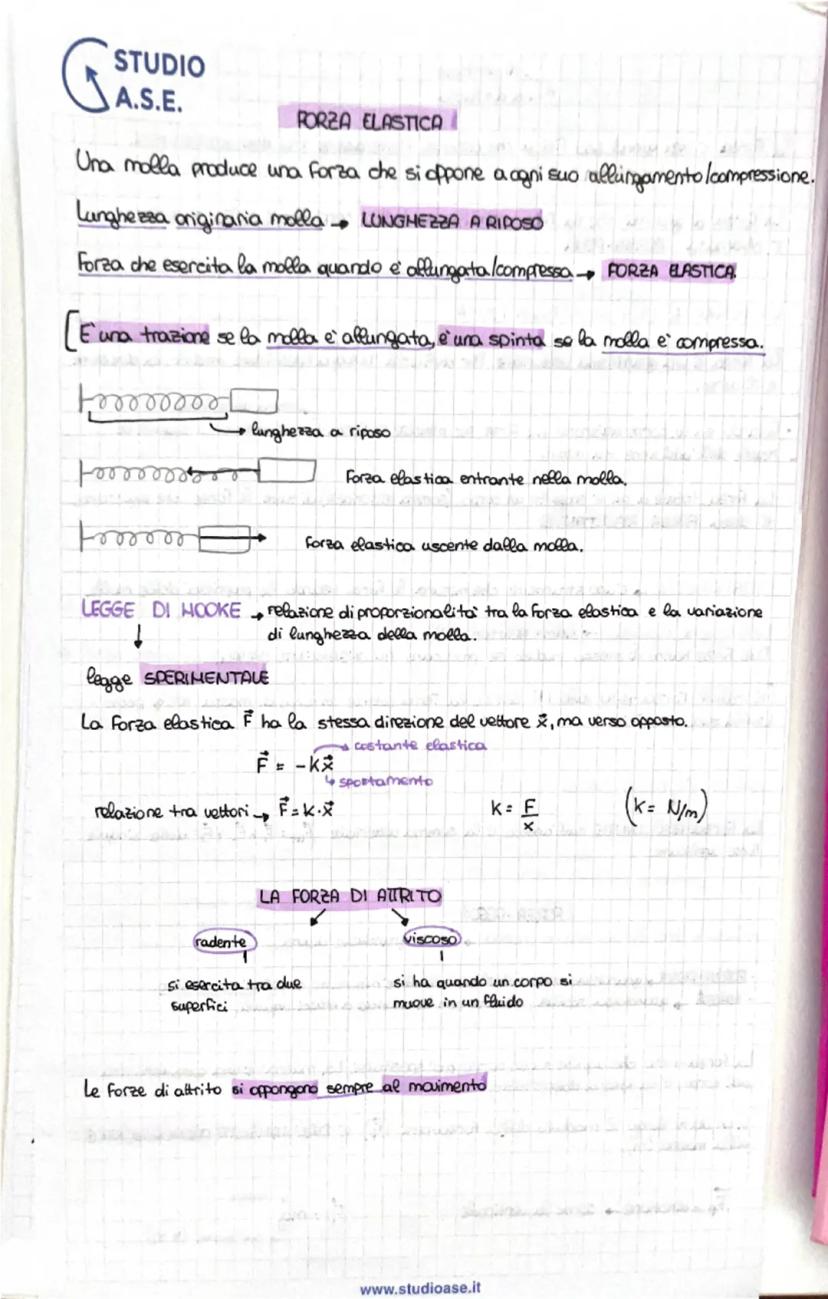 STUDIO
A.S.E.
FORZA ELASTICA
Una molla produce una forza che si oppone a ogni suo allungamento/compressione.
Lunghezza originaria molla → LUNGHEZZA A RIPOSO
Forza che esercita la molla quando e' allungata/compressa → FORZA ELASTICA.
[E' una trazione se la molla e' allungata, e' una spinta se la molla e' compressa.
→ lunghezza a riposo
Forza elastica entrante nella molla.
Forza elastica uscente dalla molla.
LEGGE DI HOOKE → relazione di proporzionalita' tra la forza elastica e la variazione
di lunghezza della molla.
legge SPERIMENTALE
La forza elastica F⃗ ha la stessa direzione del vettore x⃗, ma verso opposto.
→ costante elastica
F⃗ = -kx⃗
↳ spostamento
relazione tra vettori → F⃗ = k·x⃗ K = F/x (K = N/m)
LA FORZA DI ATTRITO
radente viscoso
si esercita tra due si ha quando un corpo si
superfici muove in un fluido
Le forze di attrito si oppongono sempre al movimento
www.studioase.it